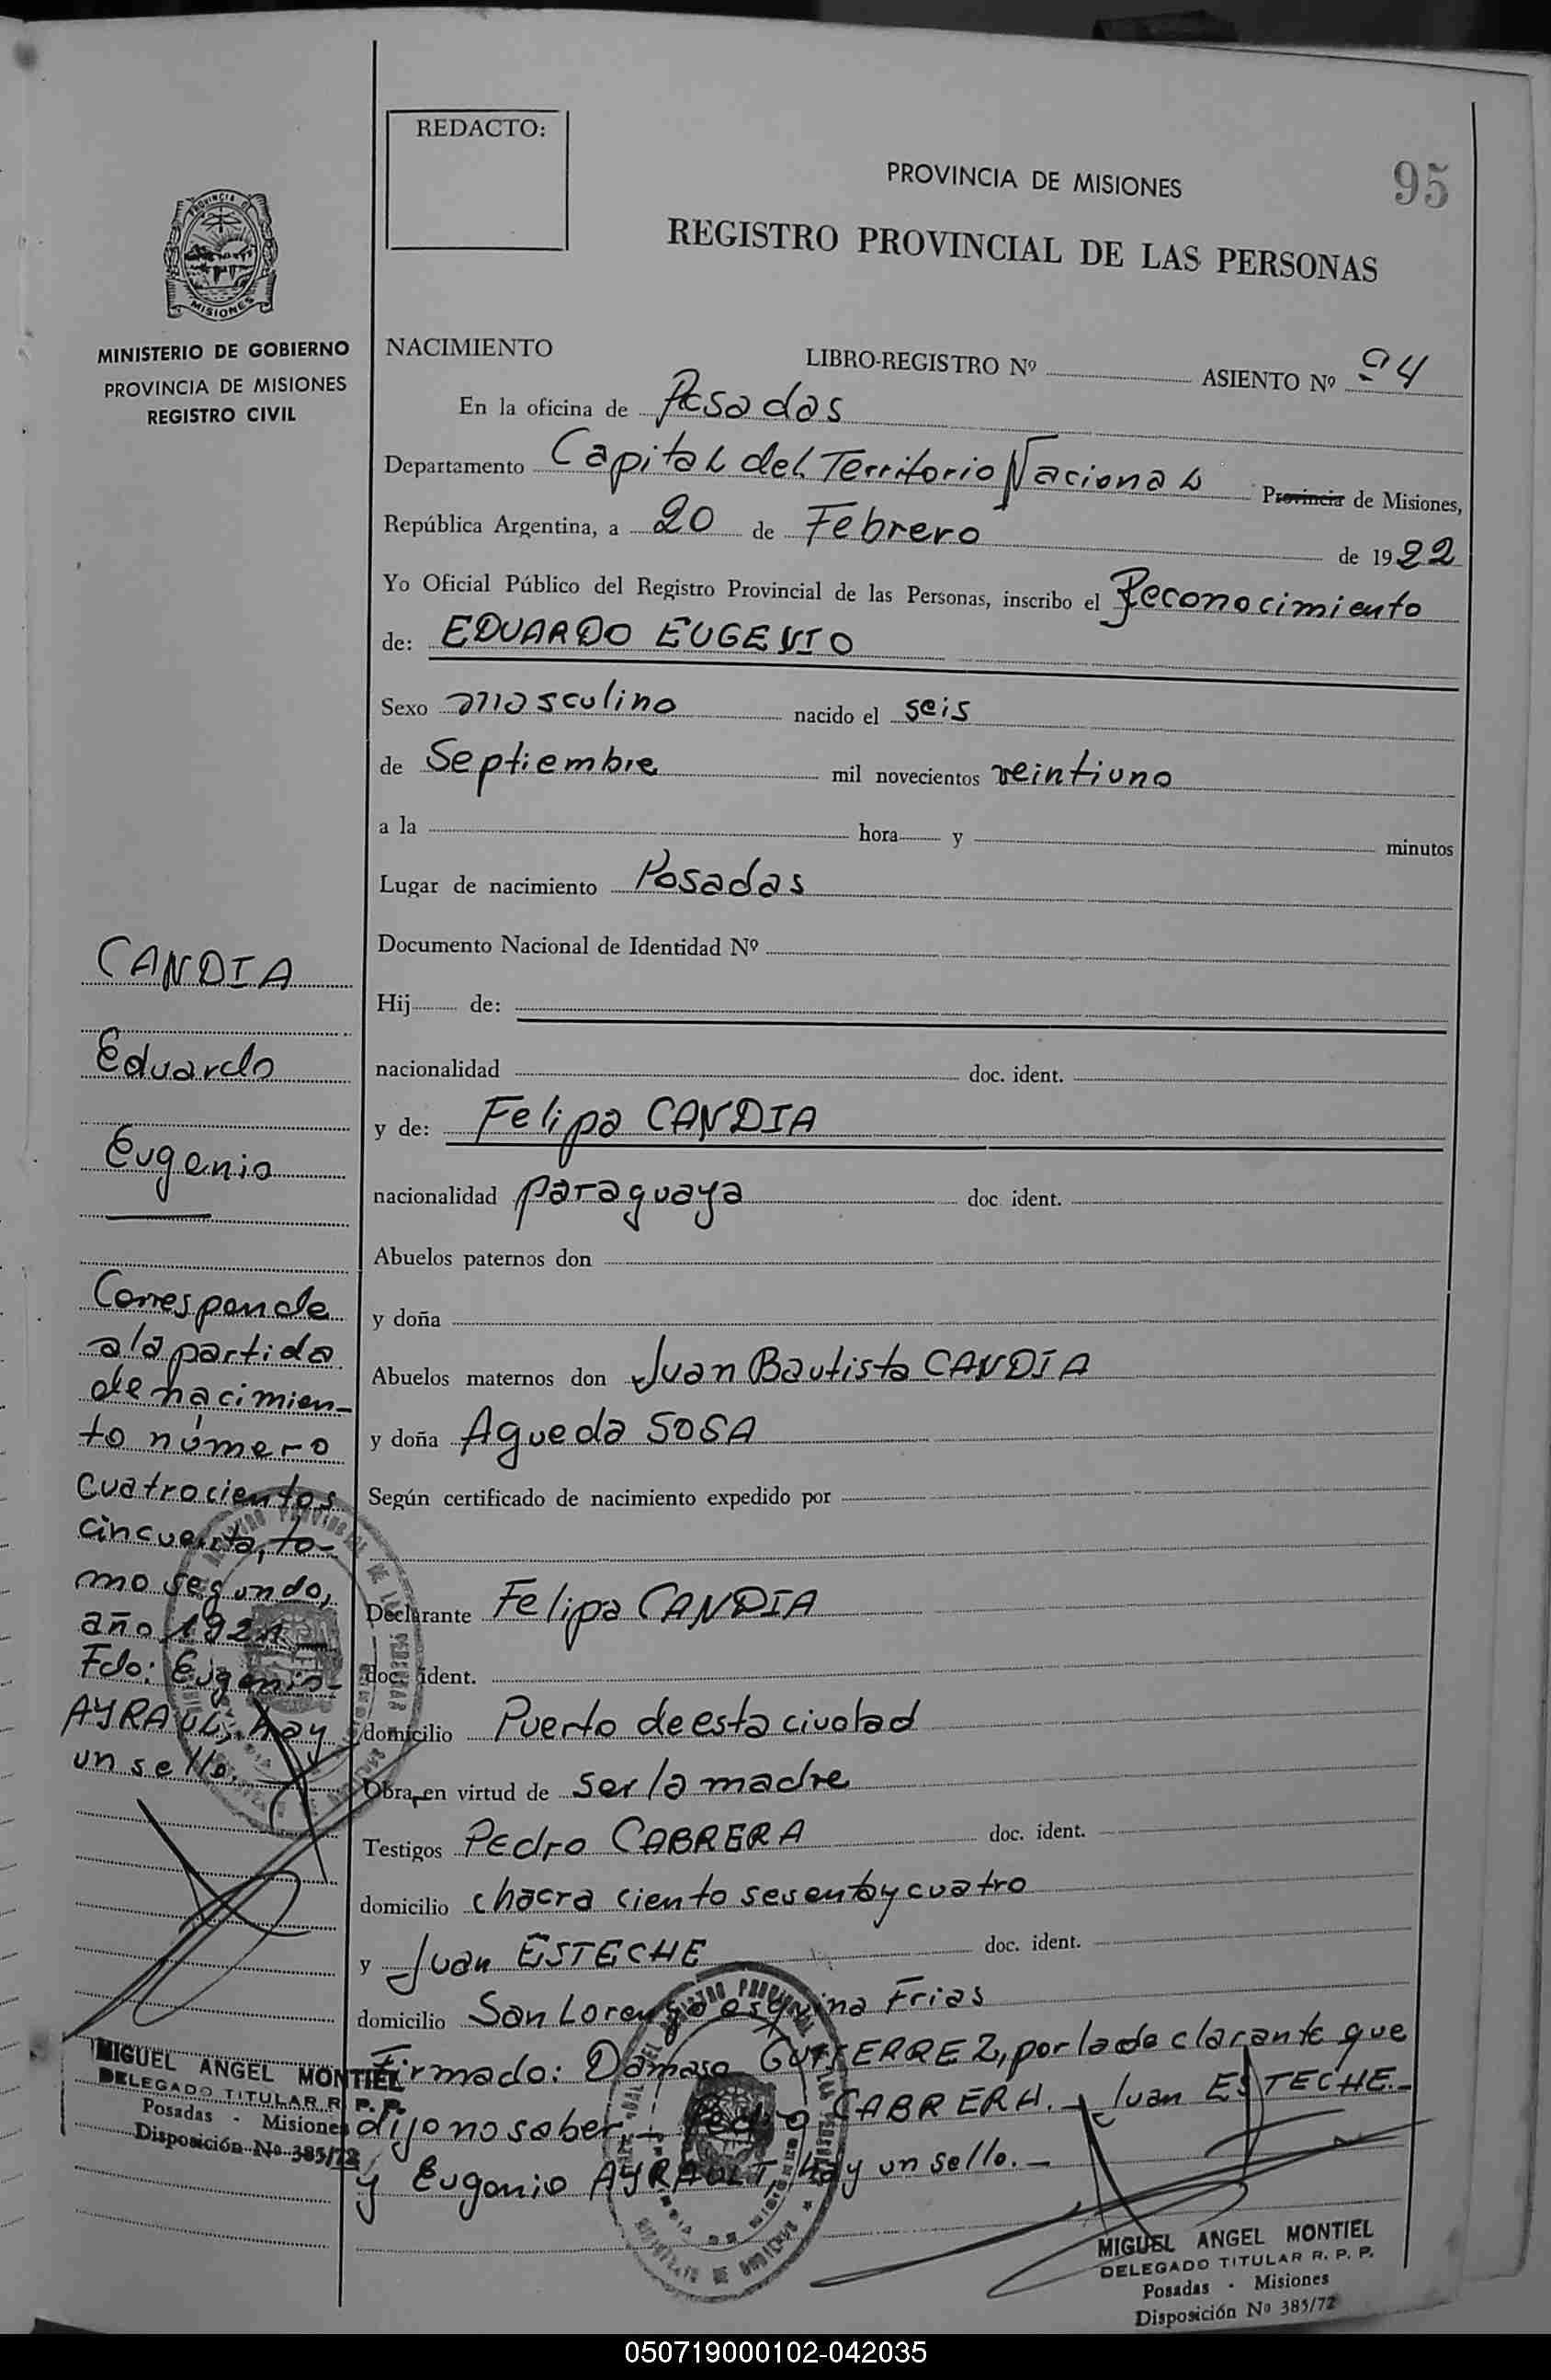 REDACTO:
PROVINCIA DE MISIONES
95
REGISTRO PROVINCIAL DE LAS PERSONAS
MISIONES
MINISTERIO DE GOBIERNO
PROVINCIA DE MISIONES
REGISTRO CIVIL
NACIMIENTO LIBRO-REGISTRO Nº ASIENTO Nº 94
En la oficina de Posadas
Departamento Capital del Territorio Nacional Provincia de Misiones,
República Argentina, a 20 de Febrero de 1922
Yo Oficial Público del Registro Provincial de las Personas, inscribo el Reconocimiento
de: EDUARDO EUGENIO
Sexo masculino nacido el seis
de Septiembre mil novecientos veintiuno
a la hora y minutos
Lugar de nacimiento Posadas
Documento Nacional de Identidad Nº
Hij de:
nacionalidad doc. ident.
y de: Felipa CANDIA
nacionalidad paraguaya doc. ident.
Abuelos paternos don
y doña
Abuelos maternos don Juan Bautista CANDIA
y doña Agueda SOSA
Según certificado de nacimiento expedido por
Declarante Felipa CANDIA
doc. ident.
domicilio Puerto de esta ciudad
Obra en virtud de ser la madre
Testigos Pedro CABRERA doc. ident.
domicilio chacra ciento sesenta y cuatro
y Juan ESTECHE doc. ident.
domicilio San Lorenzo esquina Frias
Firmado: Damaso GUTIERREZ, por la declarante que
dijo no saber.- Pedro CABRERA.- Juan ESTECHE.-
y Eugenio AYRAULT, hay un sello.-
CANDIA
Eduardo
Eugenio
Corresponde
a la partida
de nacimien-
to número
cuatrocientos
cincuenta, to-
mo segundo,
año 1921.-
Fdo: Eugenio-
AYRAULT, hay
un sello.
MIGUEL ANGEL MONTIEL
DELEGADO TITULAR R. P. P.
Posadas - Misiones
Disposición Nº 385/72
MIGUEL ANGEL MONTIEL
DELEGADO TITULAR R. P. P.
Posadas - Misiones
Disposición Nº 385/72
050719000102-042035